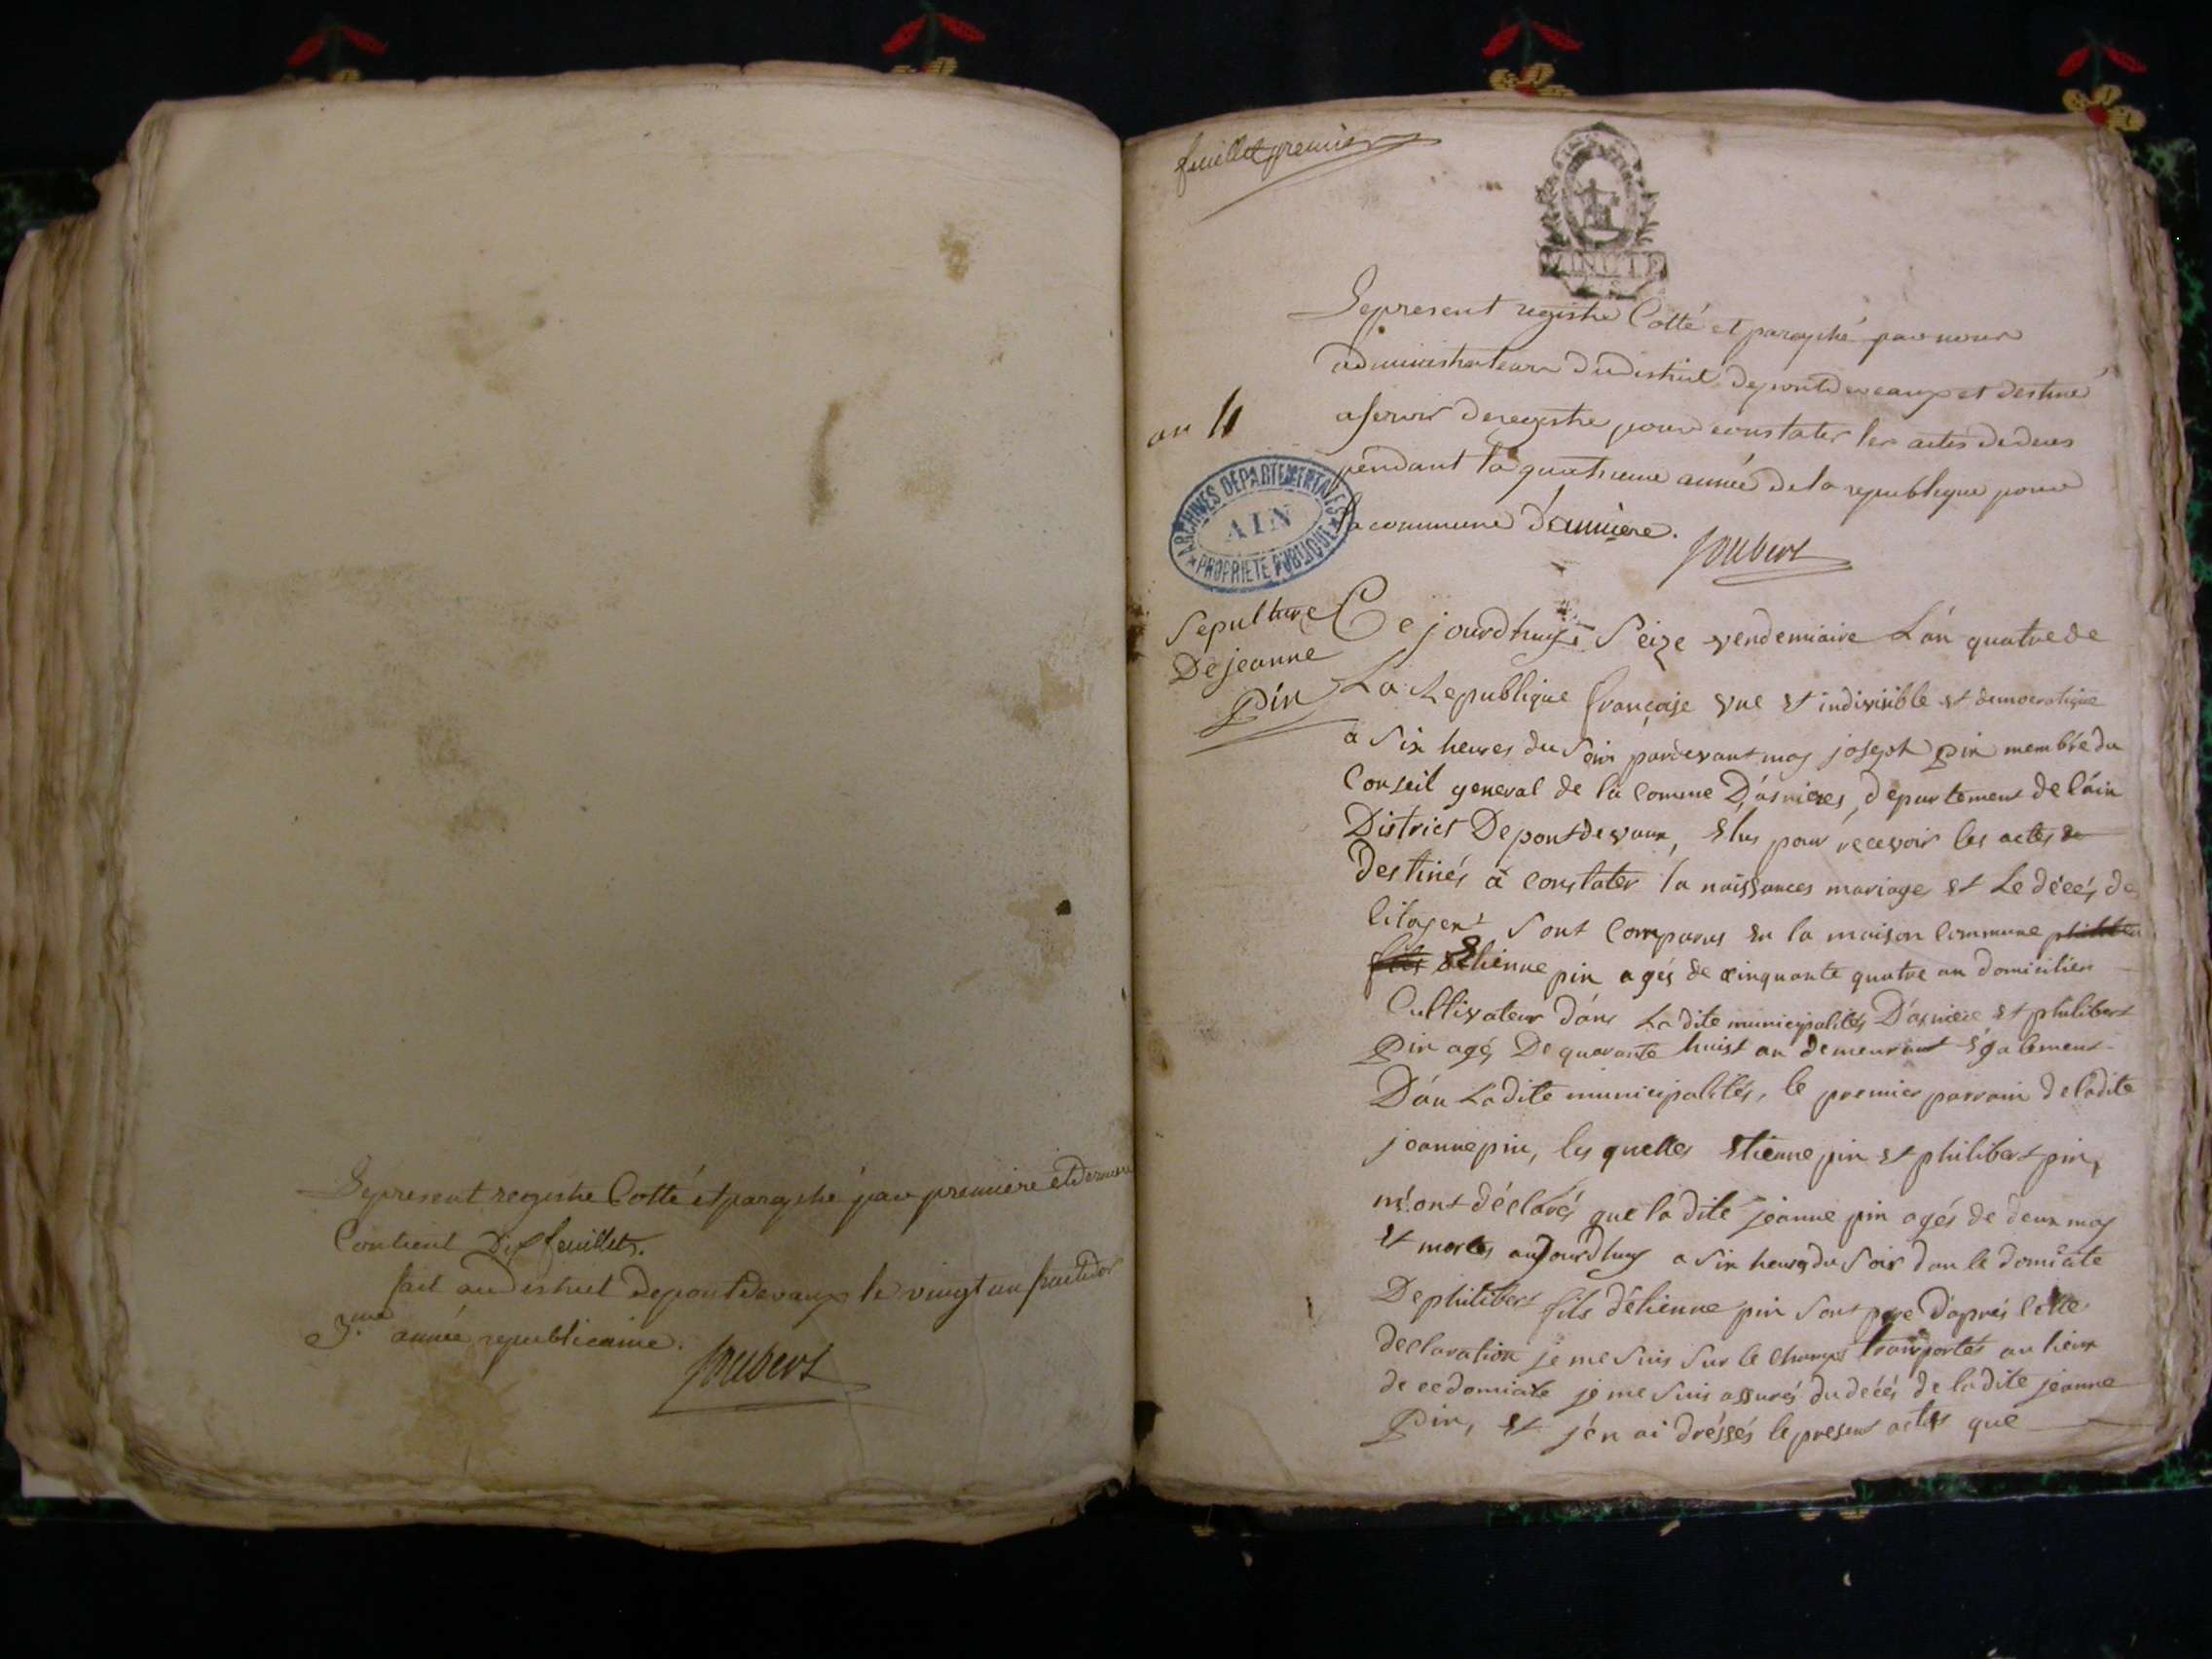 Le present registre Cotté et paraphé par premiere et derniere
Contient Dix feuillets.
fait au District depontdevaux le vingt un fructidor
3.me année republicaine.
Joubert
feuillet premier
MINUTE
Le present registre Cotté et paraphé par nous
administrateurs du district depontdevaux et destiné
a servir de registre pour constater les actes de deces
pendant la quatrieme année de la republique pour
la commune d'asniere.
Joubert
an 4
ARCHIVES DEPARTEMENTALES
AIN
PROPRIETE PUBLIQUE
Sepulture
De jeanne
pin
Ce jourdhuy Seize vendemiaire L'án quatre de
La Republique françaisse vne et indivisible et democratique
a Six heures du Soir pardevant moy joseph pin membre du
Conseil general de la Comme D'ásnieres, département de l'áin
District Depontdevaux, Elus pour recevoir les actes de
Destinés à constater la naissances mariages et Le décés de
Citoyens Sont Comparus en la maison Commune
fils Etienne pin agés de cinquante quatre an domicilier
Cultivateur dáns Ladite municipalités D'ásniere et philibert
Pin agés De quarante huist an demeurant également
Dán Ladite municipalités, le premier parrain de ladite
jeanne pin, les quelles Etienne pin et philibert pin,
m'ont déclarés que la dite jeanne pin agés de deux moy
et mortes aujourdhuy a Six heures du Soir dan le domicile
De philibert fils d'étienne pin Sont pere D'aprés Cette
declaration je me Suis Sur le Champs transportés au lieux
de ce domicile je me Suis assurés du décés de ladite jeanne
Pin, et j'én ai dréssés le present actes que